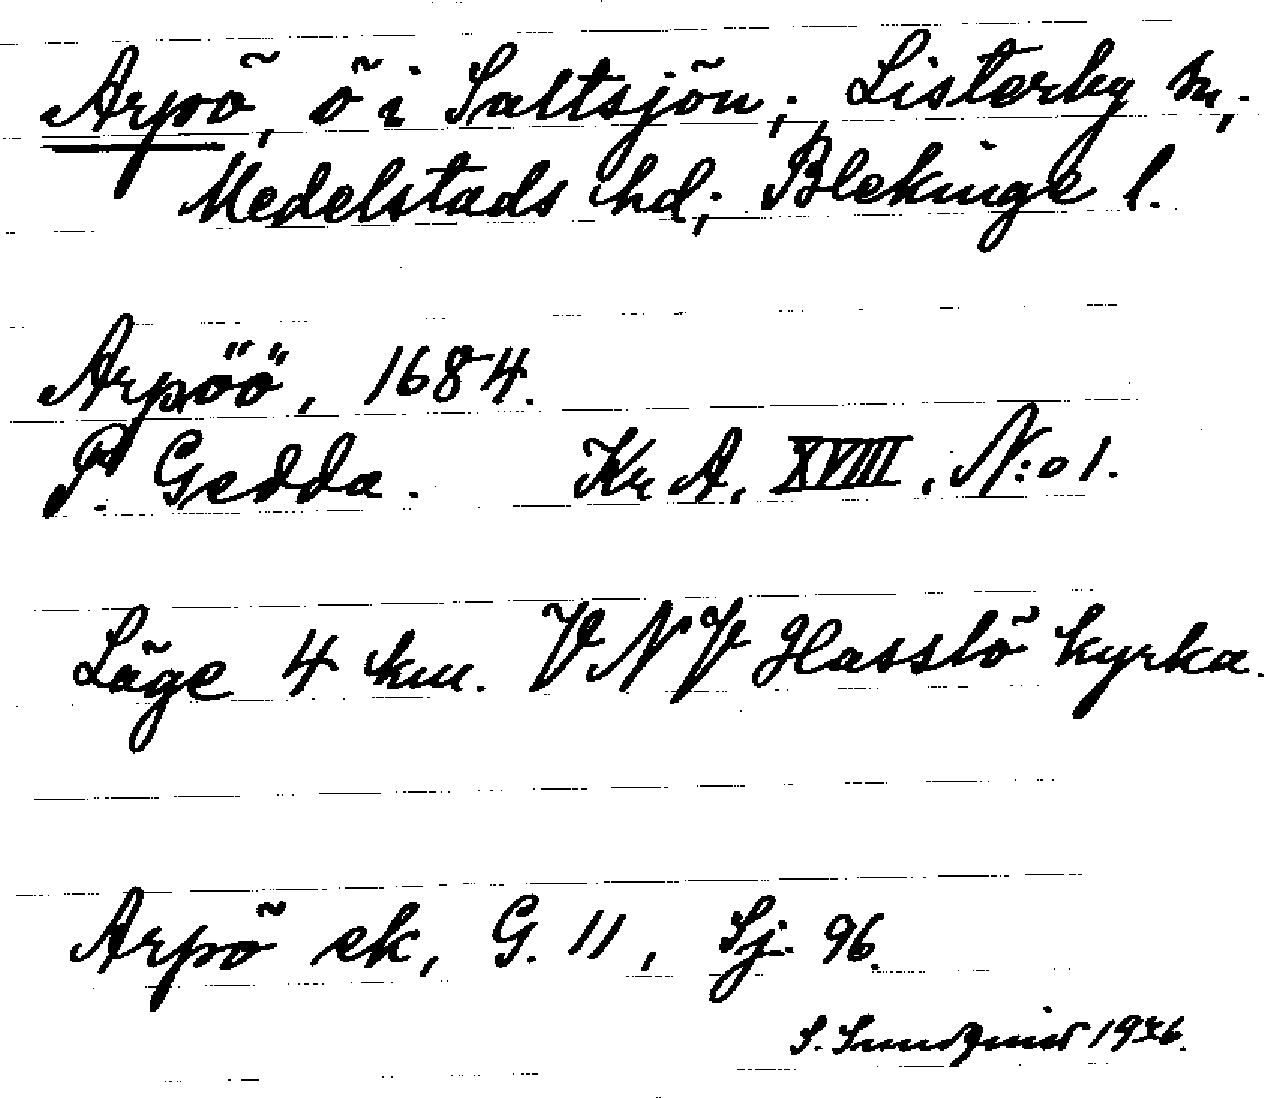 Arpö, ö i Saltsjön; Listerby sn;
Medelstads hd; Blekinge l.
Arpöö, 1684.
P. Gedda. Kr A, XVIII, N:o 1.
Läge 4 km. VNV Hasslö kyrka.
Arpö ek, G. 11, Sj. 96.
S. Sundqvist 1936.